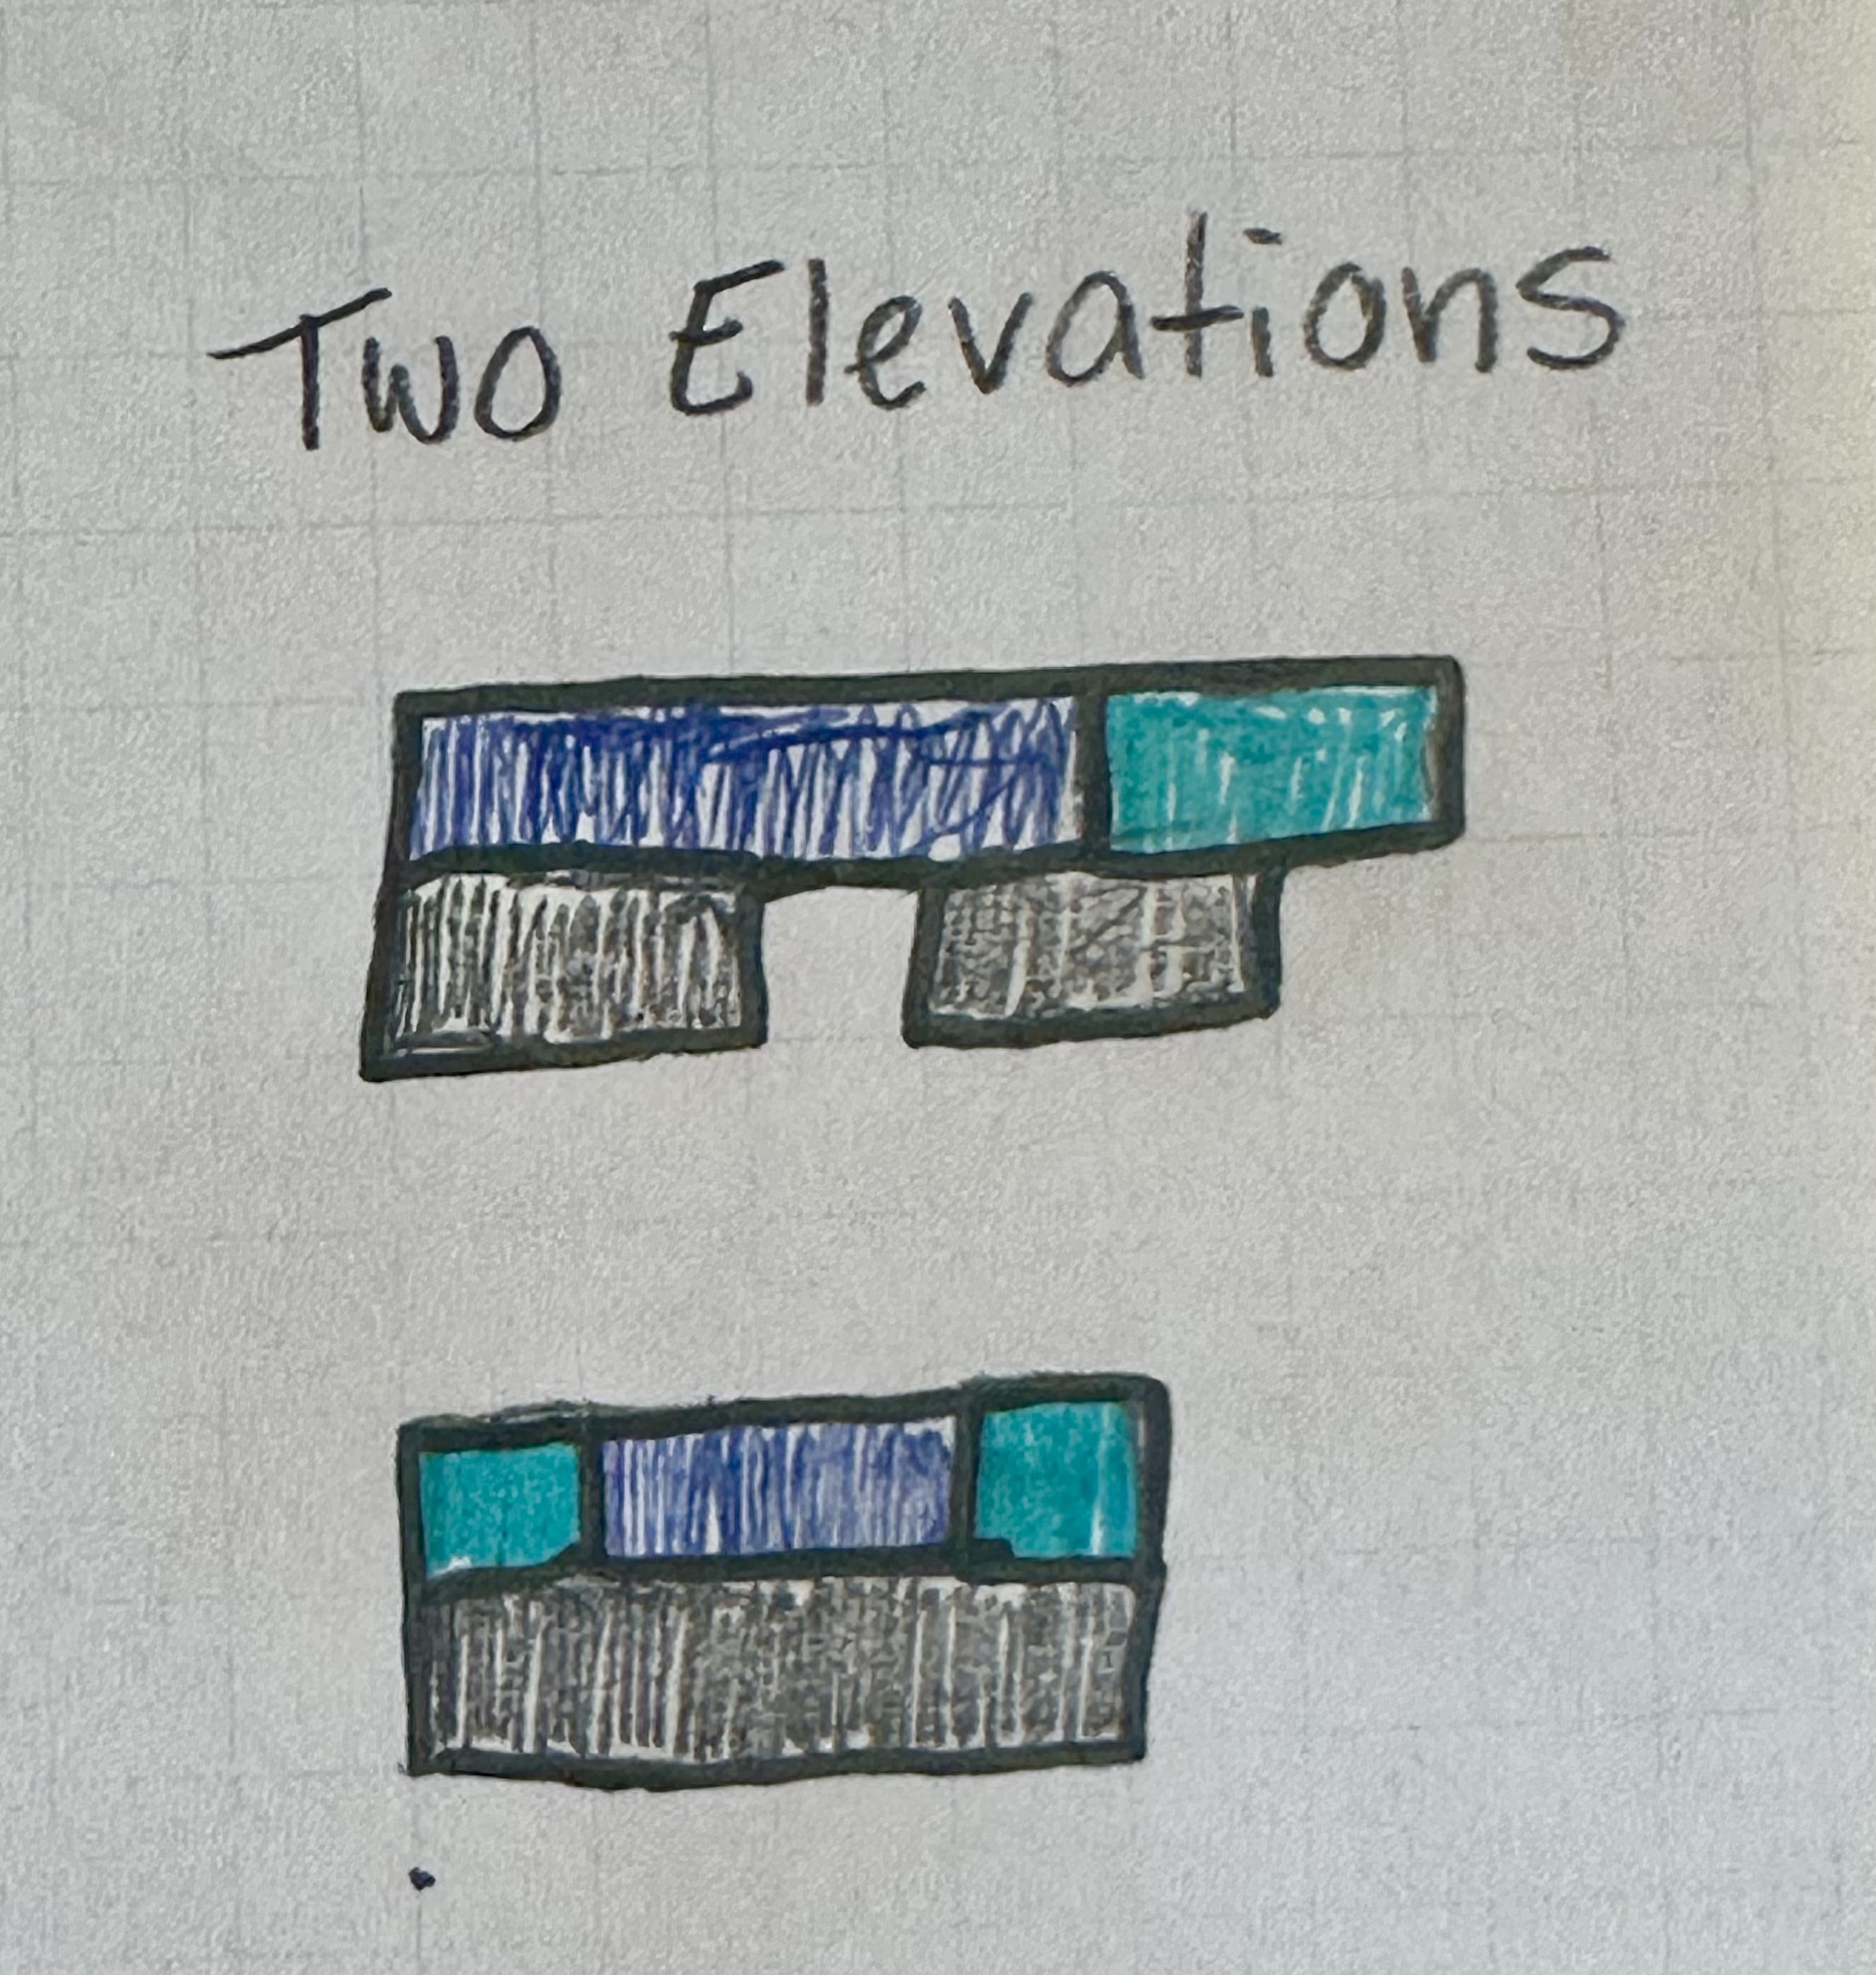 Two Elevations